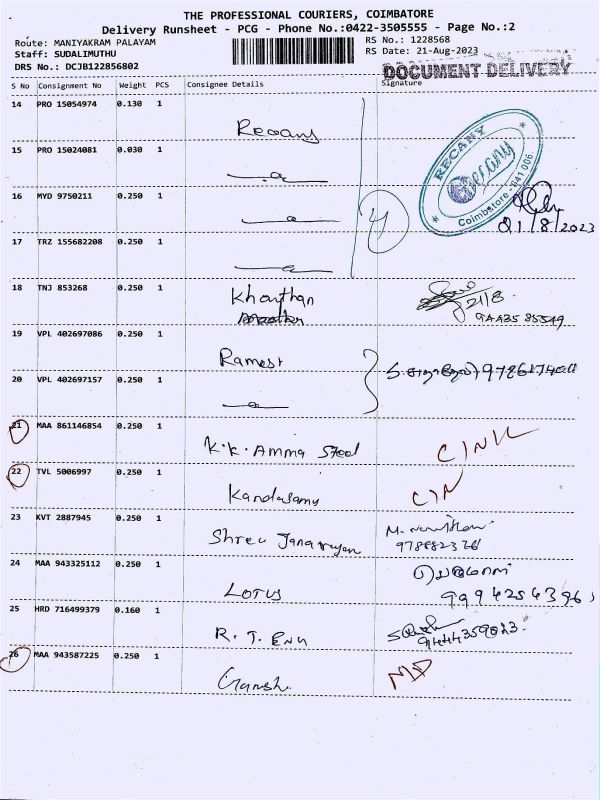 THE PROFESSIONAL COURIERS, COIMBATORE
Delivery Runsheet - PCG - Phone No.:0422-3505555 - Page No.:2
Route: MANIYAKRAM PALAYAM
Staff: SUDALIMUTHU
DRS No.: DCJB122856802
RS No.: 1228568
RS Date: 21-Aug-2023
DOCUMENT DELIVERY
S No Consignment No Weight PCS Consignee Details Signature
14 PRO 15054974 0.130 1 Recany
15 PRO 15024081 0.030 1
16 MYD 9750211 0.250 1
17 TRZ 155682208 0.250 1
4
RECANY
Recany
Coimbatore - 641 006
21/8/2023
18 TNJ 853268 0.250 1 Khanthan
21/8
19 VPL 402697086 0.250 1 Ramesh
20 VPL 402697157 0.250 1
21 MAA 861146854 0.250 1 K.K. Amma Steel
22 TVL 5006997 0.250 1 Kandasamy CIN
23 KVT 2887945 0.250 1 Shree Janarayan
24 MAA 943325112 0.250 1 LOTUS
9994254396
25 HRD 716499379 0.160 1 R. J. ENU
9444359023
26 MAA 943587225 0.250 1 Ganesh. MD